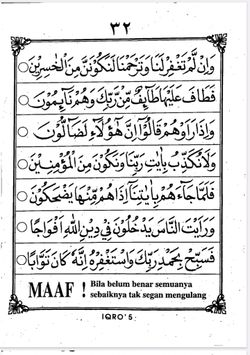 ٣٢
وَاِنْ لَّمْ تَغْفِرْلَنَا وَتَرْحَمْنَا لَنَكُوْنَنَّ مِنَ الْخٰسِرِيْنَ
فَطَافَ عَلَيْهَا طَآئِفٌ مِّنْ رَّبِّكَ وَهُمْ نَآئِمُوْنَ
وَاِذَا رَاَوْهُمْ قَالُوْٓا اِنَّ هٰٓؤُلَآءِ لَضَآلُّوْنَ
وَلَا نُكَذِّبَ بِاٰيٰتِ رَبِّنَا وَنَكُوْنَ مِنَ الْمُؤْمِنِيْنَ
فَلَمَّا جَآءَهُمْ بِاٰيٰتِنَآ اِذَا هُمْ مِّنْهَا يَضْحَكُوْنَ
وَرَاَيْتَ النَّاسَ يَدْخُلُوْنَ فِيْ دِيْنِ اللّٰهِ اَفْوَاجًا
فَسَبِّحْ بِحَمْدِ رَبِّكَ وَاسْتَغْفِرْهُ اِنَّهٗ كَانَ تَوَّابًا
MAAF ! Bila belum benar semuanya
sebaiknya tak segan mengulang
IQRO' 5